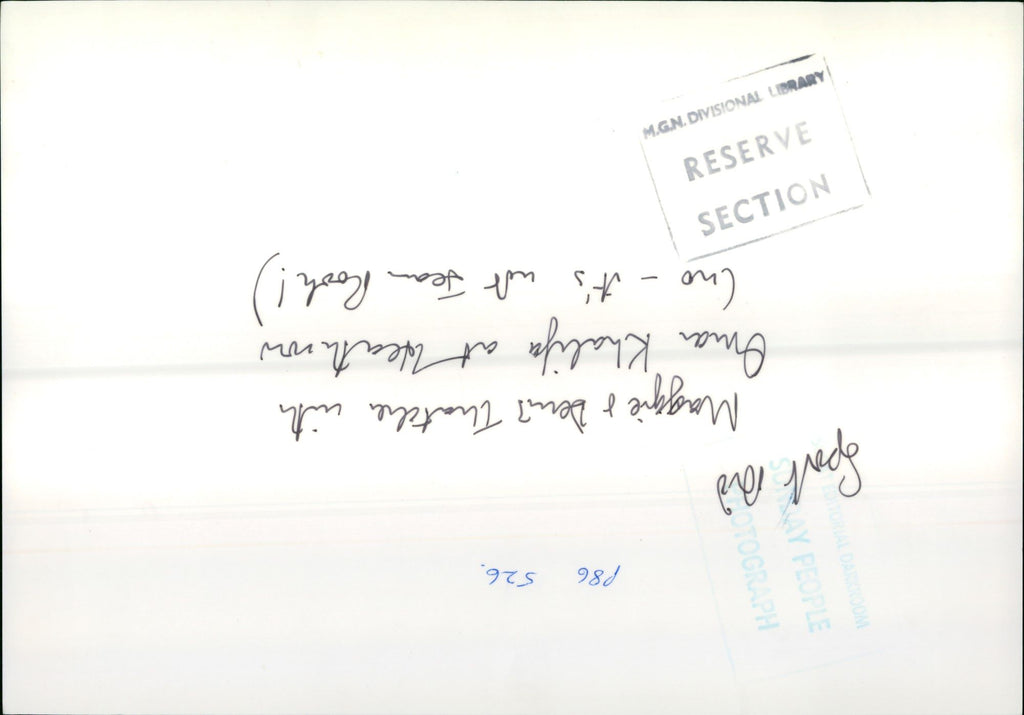 M.G.N. DIVISIONAL LIBRARY
RESERVE
SECTION
EDITORIAL DARKROOM
SUNDAY PEOPLE
PHOTOGRAPH
P86 526.
Sport Aid
Maggie & Denis Thatcher with
Omar Khalifa at Heathrow
(no - it's not Jean Rook!)